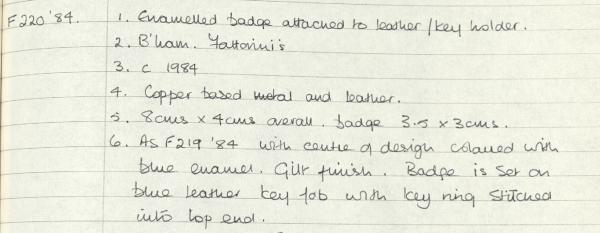 F220 '84. 1. Enamelled badge attached to leather/key holder.
2. B'ham. Fattorini's
3. c 1984
4. Copper based metal and leather.
5. 8cms x 4cms overall. badge 3.5 x 3cms.
6. AS F219 '84 with centre of design coloured with
blue enamel. Gilt finish. Badge is set on
blue leather key fob with key ring stitched
into top end.